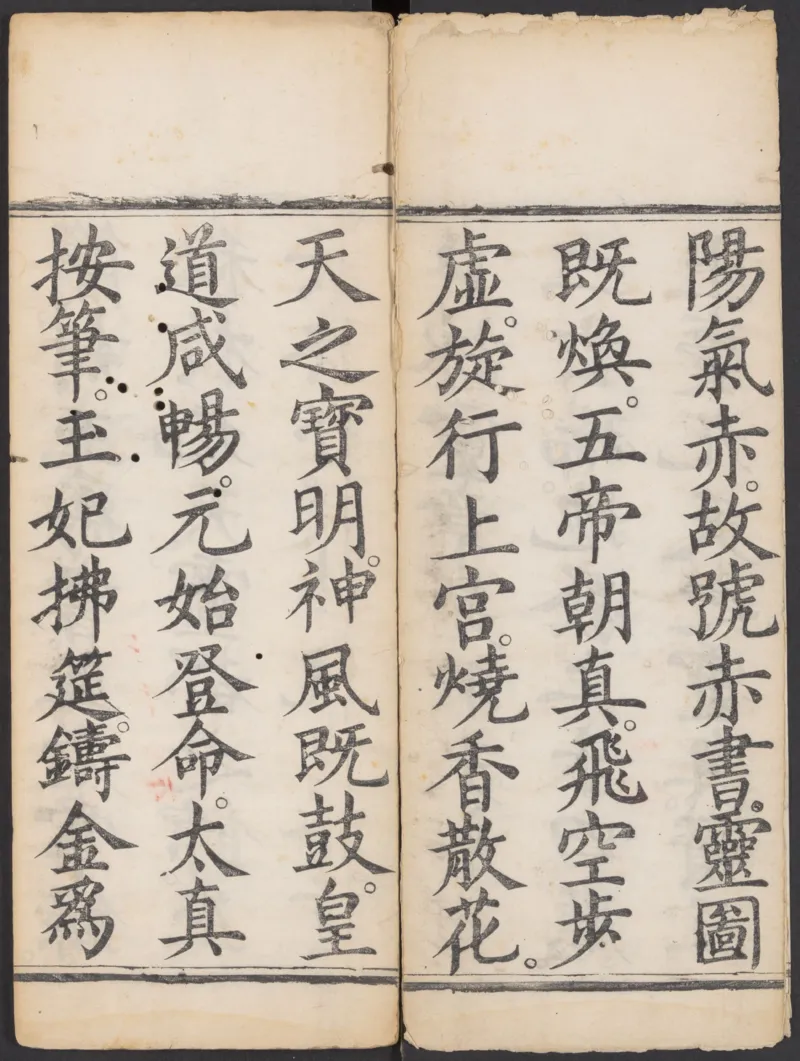 陽氣赤。故號赤書。靈圖
既煥。五帝朝真。飛空步
虛。旋行上宮。燒香散花。
天之寶明。神風既鼓。皇
道咸暢。元始登命。太真
按筆。玉妃拂筵。鑄金爲